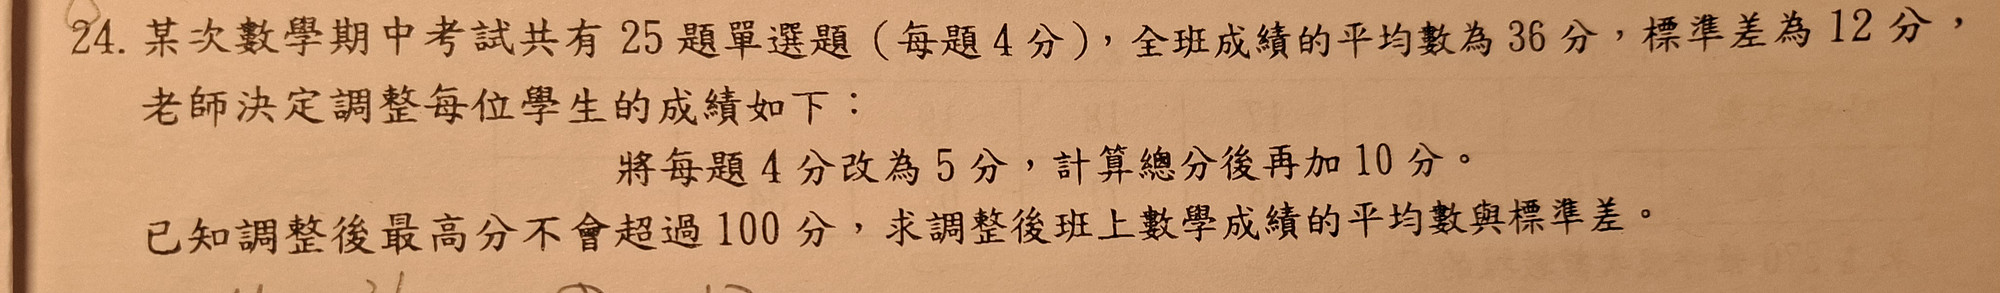 24. 某次數學期中考試共有 25 題單選題（每題 4 分），全班成績的平均數為 36 分，標準差為 12 分，
老師決定調整每位學生的成績如下：
將每題 4 分改為 5 分，計算總分後再加 10 分。
已知調整後最高分不會超過 100 分，求調整後班上數學成績的平均數與標準差。